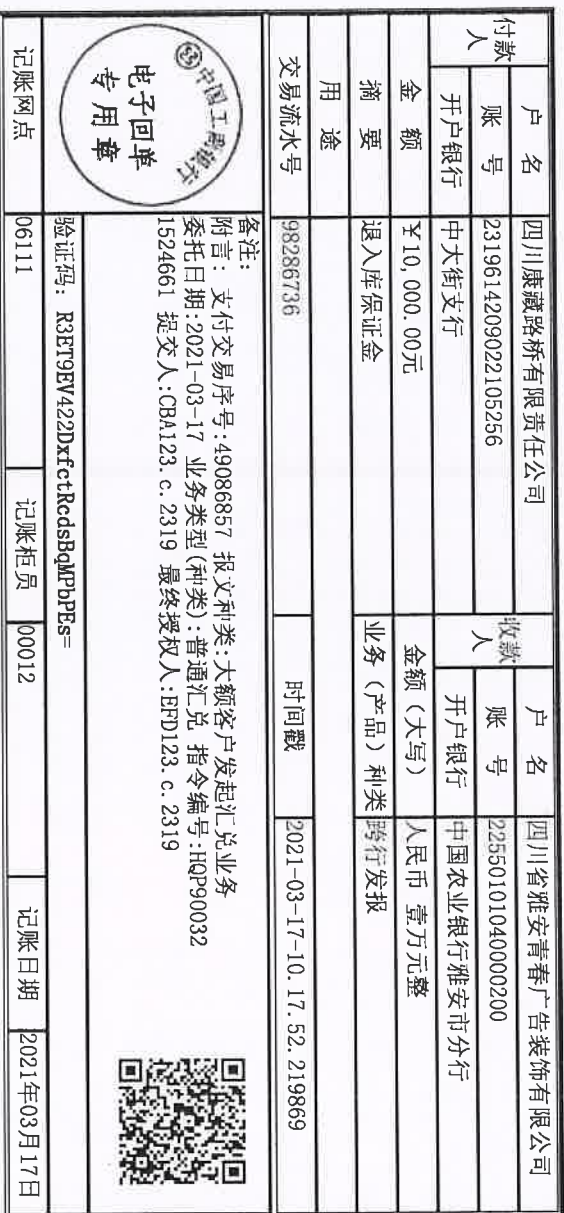 付款人 户名 四川康藏路桥有限责任公司 收款人 户名 四川省雅安青春广告装饰有限公司
账号 2319614209022105256 账号 22550101040000200
开户银行 中大街支行 开户银行 中国农业银行雅安市分行
金额 ¥10,000.00元 金额（大写） 人民币 壹万元整
摘要 退入库保证金 业务（产品）种类 跨行发报
用途
交易流水号 98286736 时间戳 2021-03-17-10.17.52.219869
中国工商银行
电子回单
专用章
备注：
附言： 支付交易序号:49086857 报文种类:大额客户发起汇兑业务
委托日期:2021-03-17 业务类型(种类):普通汇兑 指令编号:HQP90032
1524661 提交人:CBA123.c.2319 最终授权人:EFD123.c.2319
验证码: R3ET9EV422DxfctRcdsBqMPbPEs=
记账网点 06111 记账柜员 00012 记账日期 2021年03月17日